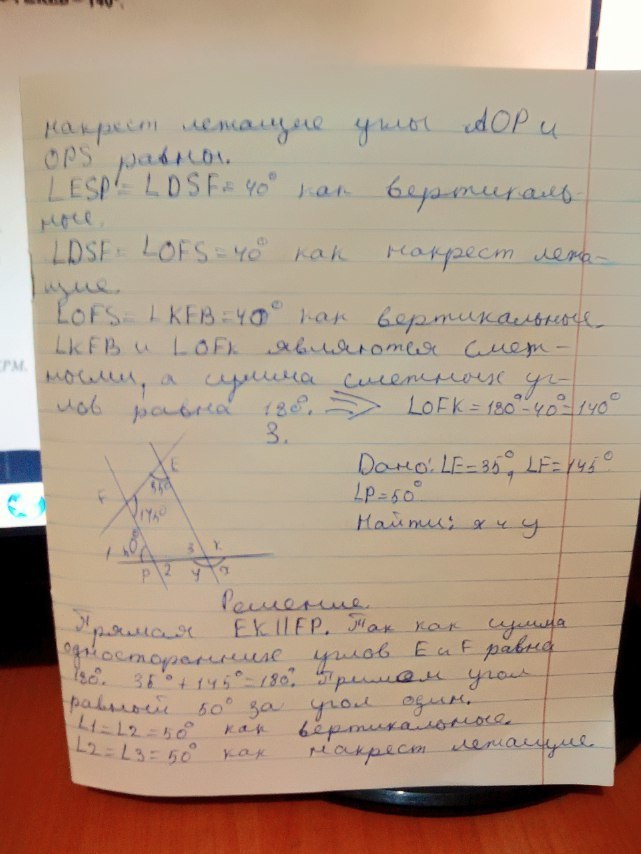 накрест лежащие углы AOP и
OPS равны.
∠ESP = ∠DSF = 40° как вертикаль-
ные.
∠DSF = ∠OFS = 40° как накрест лежа-
щие.
∠OFS = ∠KFB = 40° как вертикальные.
∠KFB и ∠OFK являются смеж-
ными, а сумма смежных уг-
лов равна 180°. => ∠OFK = 180° - 40° = 140°
3.
E
35°
F
145°
1 50°
P 2
3 K
y x
Дано: ∠E = 35°, ∠F = 145°
∠P = 50°
Найти: x и y
Решение.
Прямая EK || FP. Так как сумма
односторонних углов E и F равна
180°. 35° + 145° = 180°. Примем угол
равный 50° за угол один.
∠1 = ∠2 = 50° как вертикальные.
∠2 = ∠3 = 50° как накрест лежащие